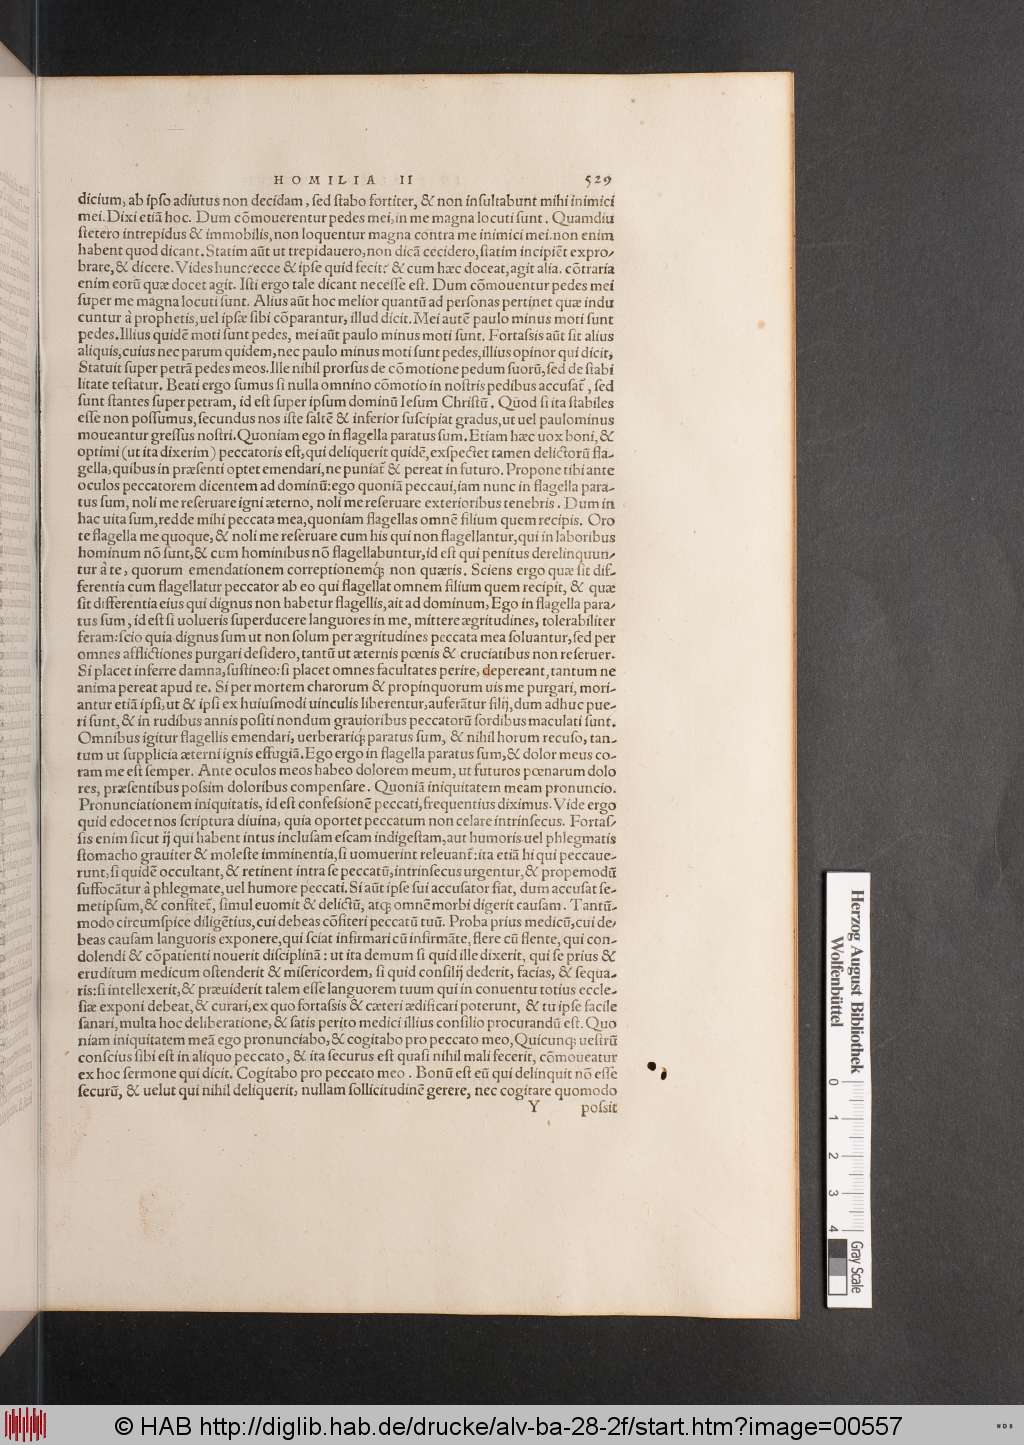 HOMILIA II 529
dicium, ab ipso adiutus non decidam, sed stabo fortiter, & non insultabunt mihi inimici
mei. Dixi etiã hoc. Dum cõmouerentur pedes mei, in me magna locuti sunt. Quamdiu
stetero intrepidus & immobilis, non loquentur magna contra me inimici mei. non enim
habent quod dicant. Statim aũt ut trepidauero, non dicã cecidero, statim incipiẽt expro-
brare, & dicere. Vides hunc? ecce & ipse quid fecit? & cum hæc doceat, agit alia. cõtraria
enim eorũ quæ docet agit. Isti ergo tale dicant necesse est. Dum cõmouentur pedes mei
super me magna locuti sunt. Alius aũt hoc melior quantũ ad personas pertinet quæ indu
cuntur à prophetis, uel ipsæ sibi cõparantur, illud dicit. Mei autẽ paulo minus moti sunt
pedes. Illius quidẽ moti sunt pedes, mei aũt paulo minus moti sunt. Fortassis aũt sit alius
aliquis, cuius nec parum quidem, nec paulo minus moti sunt pedes, illius opinor qui dicit,
Statuit super petrã pedes meos. Ille nihil prorsus de cõmotione pedum suorũ, sed de stabi
litate testatur. Beati ergo sumus si nulla omnino cõmotio in nostris pedibus accusat̃, sed
sunt stantes super petram, id est super ipsum dominũ Iesum Christũ. Quod si ita stabiles
esse non possumus, secundus nos iste saltẽ & inferior suscipiat gradus, ut uel paulominus
moueantur gressus nostri. Quoniam ego in flagella paratus sum. Etiam hæc uox boni, &
optimi (ut ita dixerim) peccatoris est, qui deliquerit quidẽ, exspectet tamen delictorũ fla-
gella, quibus in præsenti optet emendari, ne puniat̃ & pereat in futuro. Propone tibi ante
oculos peccatorem dicentem ad dominũ: ego quoniã peccaui, iam nunc in flagella para-
tus sum, noli me reseruare igni æterno, noli me reseruare exterioribus tenebris. Dum in
hac uita sum, redde mihi peccata mea, quoniam flagellas omnẽ filium quem recipis. Oro
te flagella me quoque, & noli me reseruare cum his qui non flagellantur, qui in laboribus
hominum nõ sunt, & cum hominibus nõ flagellabuntur, id est qui penitus derelinquun-
tur à te, quorum emendationem correptionemq; non quæris. Sciens ergo quæ sit dif-
ferentia cum flagellatur peccator ab eo qui flagellat omnem filium quem recipit, & quæ
sit differentia eius qui dignus non habetur flagellis, ait ad dominum, Ego in flagella para-
tus sum, id est si uolueris superducere languores in me, mittere ægritudines, tolerabiliter
feram: scio quia dignus sum ut non solum per ægritudines peccata mea soluantur, sed per
omnes afflictiones purgari desidero, tantũ ut æternis pœnis & cruciatibus non reseruer.
Si placet inferre damna, sustineo: si placet omnes facultates perire, depereant, tantum ne
anima pereat apud te. Si per mortem charorum & propinquorum uis me purgari, mori-
antur etiã ipsi, ut & ipsi ex huiusmodi uinculis liberentur, auferãtur filij, dum adhuc pue-
ri sunt, & in rudibus annis positi nondum grauioribus peccatorũ sordibus maculati sunt.
Omnibus igitur flagellis emendari, uerberariq; paratus sum, & nihil horum recuso, tan-
tum ut supplicia æterni ignis effugiã. Ego ergo in flagella paratus sum, & dolor meus co-
ram me est semper. Ante oculos meos habeo dolorem meum, ut futuros pœnarum dolo
res, præsentibus possim doloribus compensare. Quoniã iniquitatem meam pronuncio.
Pronunciationem iniquitatis, id est confessionẽ peccati, frequentius diximus. Vide ergo
quid edocet nos scriptura diuina, quia oportet peccatum non celare intrinsecus. Fortas-
sis enim sicut ij qui habent intus inclusam escam indigestam, aut humoris uel phlegmatis
stomacho grauiter & moleste imminentia, si uomuerint releuant̃: ita etiã hi qui peccaue-
runt, si quidẽ occultant, & retinent intra se peccatũ, intrinsecus urgentur, & propemodũ
suffocãtur à phlegmate, uel humore peccati. Si aũt ipse sui accusator fiat, dum accusat se-
metipsum, & confitet̃, simul euomit & delictũ, atq; omnẽ morbi digerit causam. Tantũ-
modo circumspice diligẽtius, cui debeas cõfiteri peccatũ tuũ. Proba prius medicũ, cui de-
beas causam languoris exponere, qui sciat infirmari cũ infirmãte, flere cũ flente, qui con-
dolendi & cõpatienti nouerit disciplinã: ut ita demum si quid ille dixerit, qui se prius &
eruditum medicum ostenderit & misericordem, si quid consilij dederit, facias, & sequa-
ris: si intellexerit, & præuiderit talem esse languorem tuum qui in conuentu totius eccle-
siæ exponi debeat, & curari, ex quo fortassis & cæteri ædificari poterunt, & tu ipse facile
sanari, multa hoc deliberatione, & satis perito medici illius consilio procurandũ est. Quo
niam iniquitatem meã ego pronunciabo, & cogitabo pro peccato meo, Quicunq; uestrũ
conscius sibi est in aliquo peccato, & ita securus est quasi nihil mali fecerit, cõmoueatur
ex hoc sermone qui dicit. Cogitabo pro peccato meo. Bonũ est eũ qui delinquit nõ esse
securũ, & uelut qui nihil deliquerit, nullam sollicitudinẽ gerere, nec cogitare quomodo
Y possit
Herzog August Bibliothek
Wolfenbüttel
0 1 2 3 4
Gray Scale
© HAB http://diglib.hab.de/drucke/alv-ba-28-2f/start.htm?image=00557